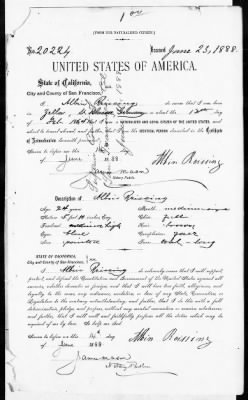 [FORM FOR NATURALIZED CITIZEN.]
No. 20224 Issued June 23, 1888.
UNITED STATES OF AMERICA.
State of California,
City and County of San Francisco.
I Albin Reissing do swear that I was born
in Zella on or about the
day of that I am a NATURALIZED AND LOYAL CITIZEN OF THE UNITED STATES, and
about to travel abroad; and further, that I am the IDENTICAL PERSON described in the Certificate
of Naturalization herewith presented.
Sworn to before me this
day of June 1888
Albin Reissing
Notary Public.
Description of Albin Reissing
Age 24 years
Mouth medium size
Stature 5 ft 10 inches Eng.
Chin full
Forehead medium high
Hair brown
Eyes blue
Complexion fair
Nose pointed
Face oval - long
STATE OF CALIFORNIA,
City and County of San Francisco.
I Albin Reissing do solemnly swear that I will support,
protect, and defend the Constitution and Government of the United States against all
enemies, whether domestic or foreign; and that I will bear true faith, allegiance, and
loyalty to the same, any ordinance, resolution, or law of any State, Convention or
Legislature to the contrary notwithstanding; and further, that I do this with a full
determination, pledge and purpose, without any mental reservation or evasion whatsoever;
and further, that I will well and faithfully perform all the duties which may be
required of me by law. So help me God.
Sworn to before me this
day of June 1888
Albin Reissing
Notary Public.